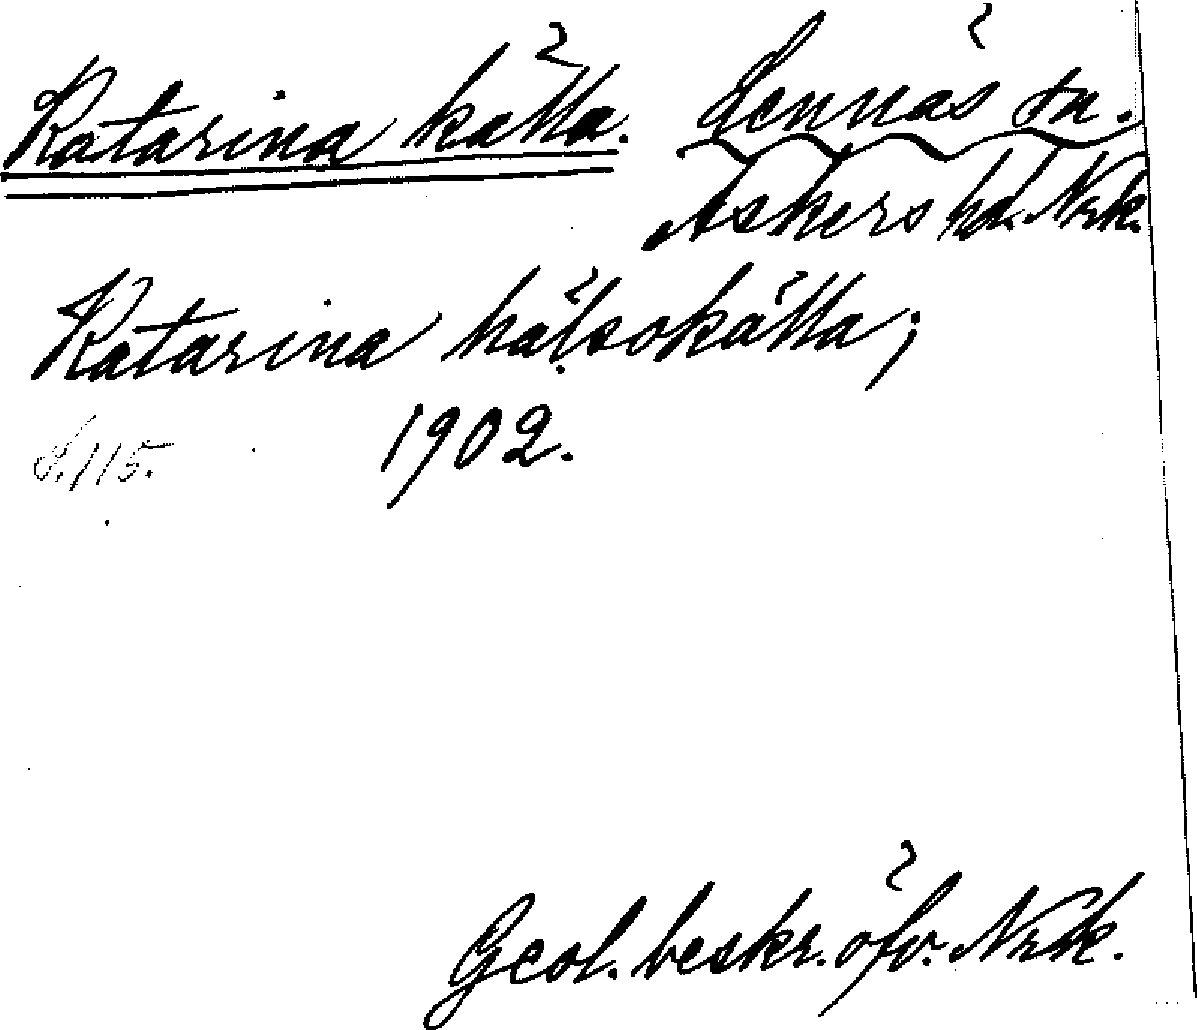 Katarina källa. Lennäs sn.
Askers hd. Nrk.
Katarina hälsokälla;
1902.
S. 115.
Geol. beskr. öfv. Nrk.